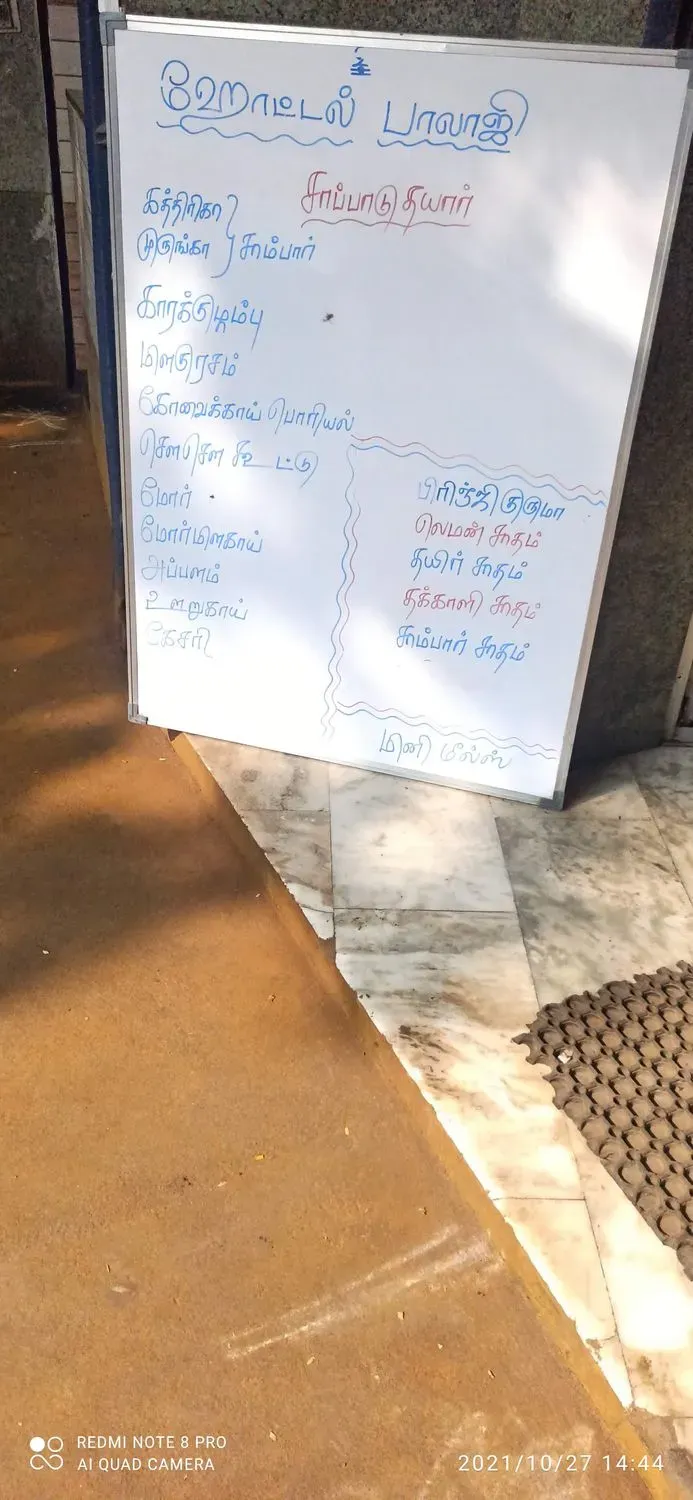 உ
ஹோட்டல் பாலாஜி
சாப்பாடு தயார்
கத்திரிகா
முருங்கா } சாம்பார்
காரக்குழம்பு
மிளகுரசம்
கோவைக்காய் பொரியல்
சௌசௌ கூட்டு
மோர்
மோர்மிளகாய்
அப்பளம்
ஊறுகாய்
கேசரி
பிரிஞ்ஜி குருமா
லெமன் சாதம்
தயிர் சாதம்
தக்காளி சாதம்
சாம்பார் சாதம்
மினி மீல்ஸ்
REDMI NOTE 8 PRO
AI QUAD CAMERA
2021/10/27 14:44